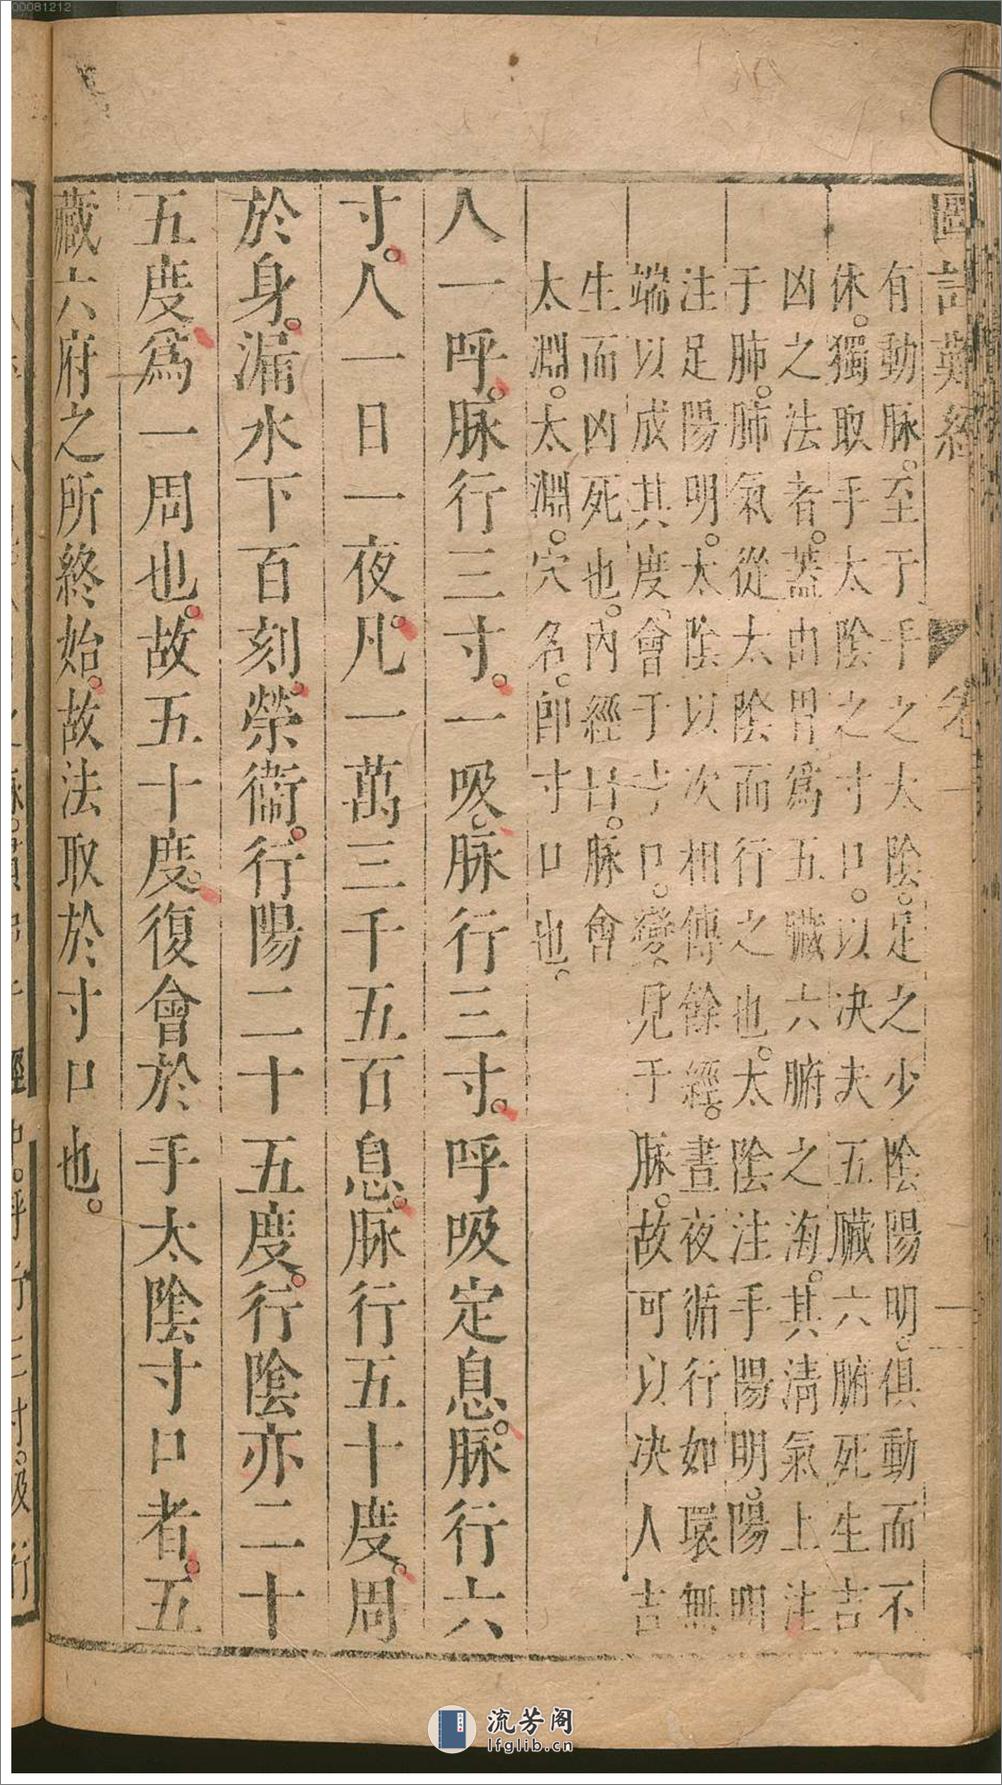 00081212
圖註難經
卷一
有動脉。至于手之太陰。足之少陰陽明。俱動而不
休。獨取手太陰之寸口。以決夫五臟六腑死生吉
凶之法者。蓋由胃爲五臟六腑之海。其清氣上注
于肺。肺氣從太陰而行之也。太陰注手陽明。陽明
注足陽明。太陰以次相傳餘經。晝夜循行如環無
端以成其度。會于寸口。變見于脉。故可以決人吉
生而凶死也。内經曰。脉會
太淵。太淵。穴名。即寸口也。
人一呼。脉行三寸。一吸。脉行三寸。呼吸定息。脉行六
寸。人一日一夜。凡一萬三千五百息。脉行五十度。周
於身。漏水下百刻。榮衞。行陽二十五度。行陰亦二十
五度。爲一周也。故五十度。復會於手太陰寸口者。五
藏六府之所終始。故法取於寸口也。
流芳阁
lfglib.cn